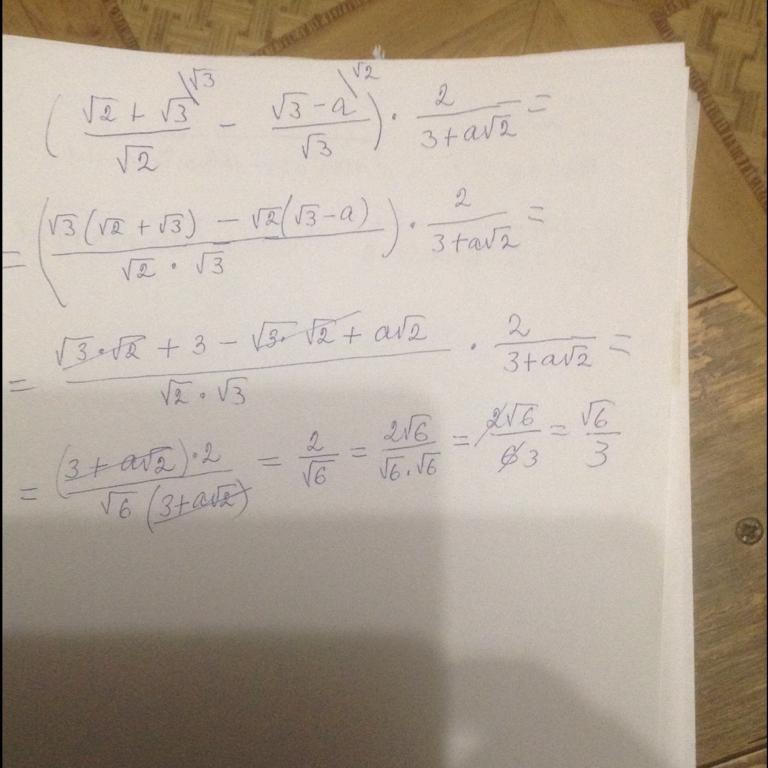 ( (√2 + √3)/√2 \√3 - (√3 - a)/√3 \√2 ) · 2/(3+a√2) =
= ( (√3(√2 + √3) - √2(√3 - a))/(√2 · √3) ) · 2/(3+a√2) =
= (√3·√2 + 3 - √3·√2 + a√2)/(√2 · √3) · 2/(3+a√2) =
= ((3+a√2)·2)/(√6(3+a√2)) = 2/√6 = 2√6/(√6·√6) = 2√6/6 3 = √6/3